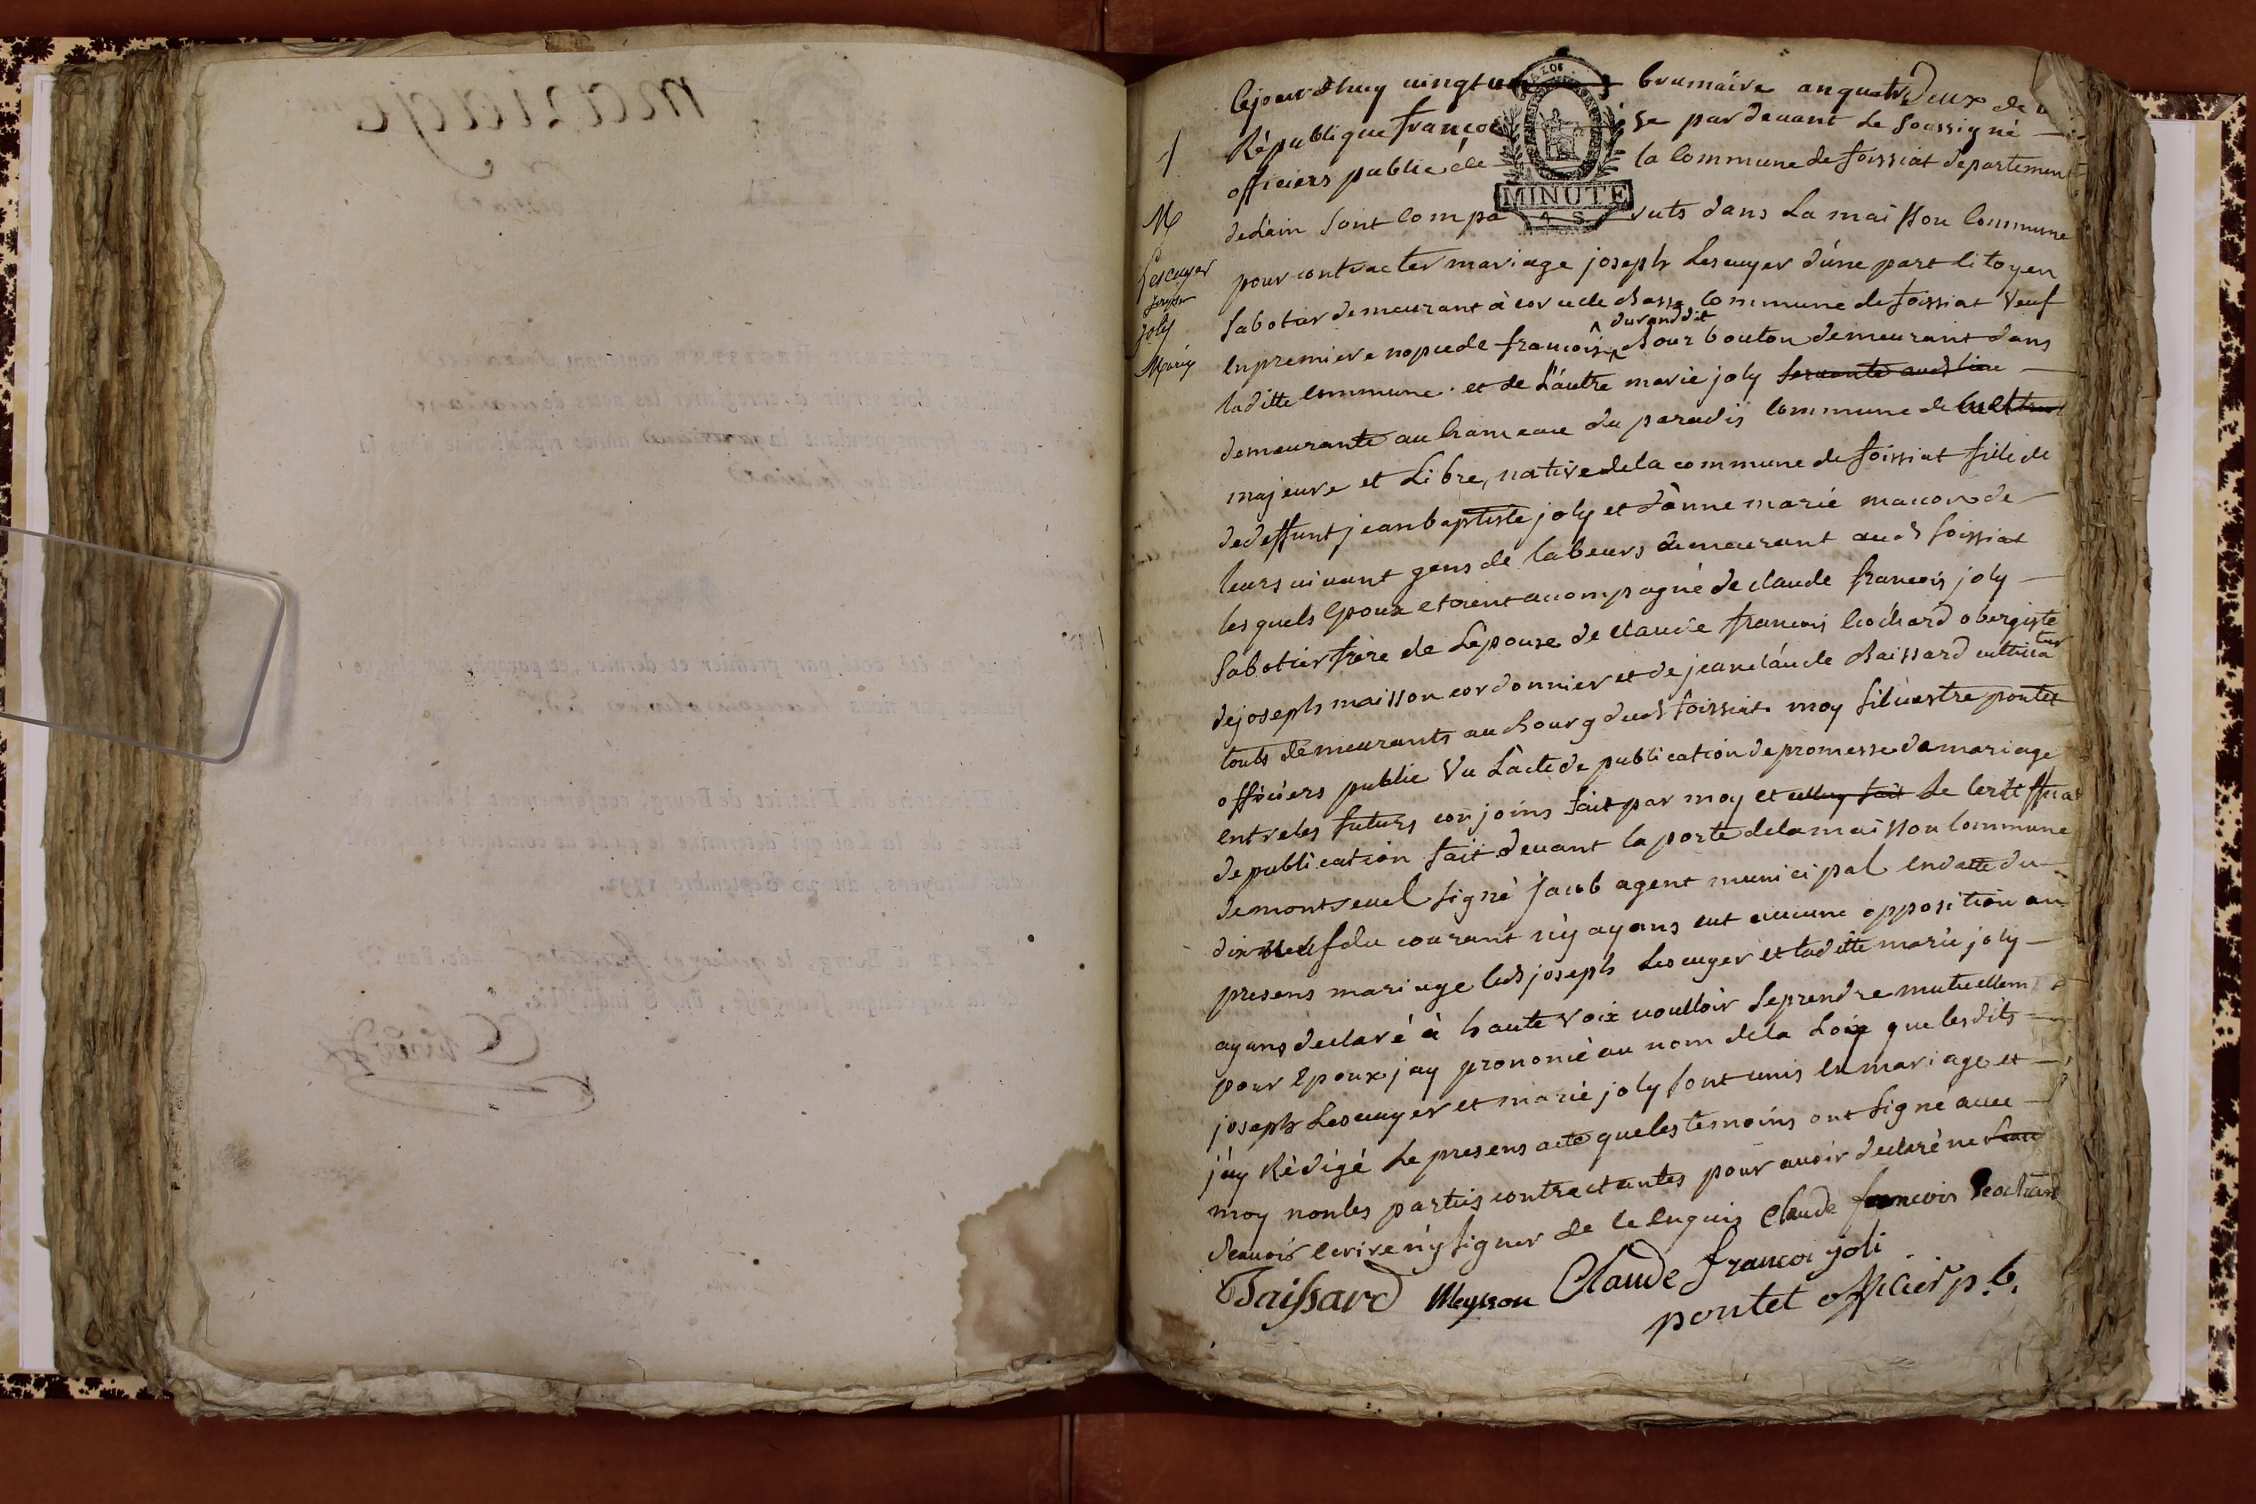 1
M
Lescuyer
joseph
joly
Marie
MINUTE
4 S
Cejourdhuy vingt brumaire an quatr Deux de
République françoi se pardevant Le Soussigné
officiers public de la Commune de foissiat departement
de Lain sont Compa ruts dans La maisson Commune
pour contracter mariage joseph Lescuyer d'une part Citoyen
Sabotier demeurant à Commune de foissiat veuf
durand dit
En premiere nopce de francoise bouton demeurant dans
laditte Commune et de L'autre marie joly servante audt lieu
demeurante au hameaue du paradis Commune de
majeure et Libre, native de la commune de foissiat fille de
de deffunt jean baptiste joly et d'anne marie maccon de
leurs vivant gens de labeurs demeurant audt foissiat
lesquels Epoux etoient accompagné de claude francois joly
Sabotier frère de L'épouse de claude francois Cochard obergiste
de joseph maisson cordonnier et de jean claude Baissard cultivateur
touts demeurants au Bourg dudt foissiat moy Silvestre pontet
officiers public Vu L'acte de publication de promesse de mariage
entre les futurs conjoins fait par moy et celluy fait Le Certifficat
de publication fait devant la porte de la maisson Commune
de montrevel signé jacob agent municipal En datte du
dix neuf du courant n'y ayans eut aucune opposition au
presens mariage ledt joseph Lescuyer et laditte marie joly
ayans declaré à haute voix voulloir se prendre mutuellem
pour Epoux jay prononcé au nom de la Loix que lesdits
joseph Lescuyer et marie joly sont unis En mariage et
j'ay Rédigé Le presens acte que les temoins ont signe avec
moy non les parties contractantes pour avoir declaré ne
scavoir ecrire n'y signer de ce Enquis Claude francois Cochard
Baissard Meysson Claude francoi joli
pontet officier p. b.